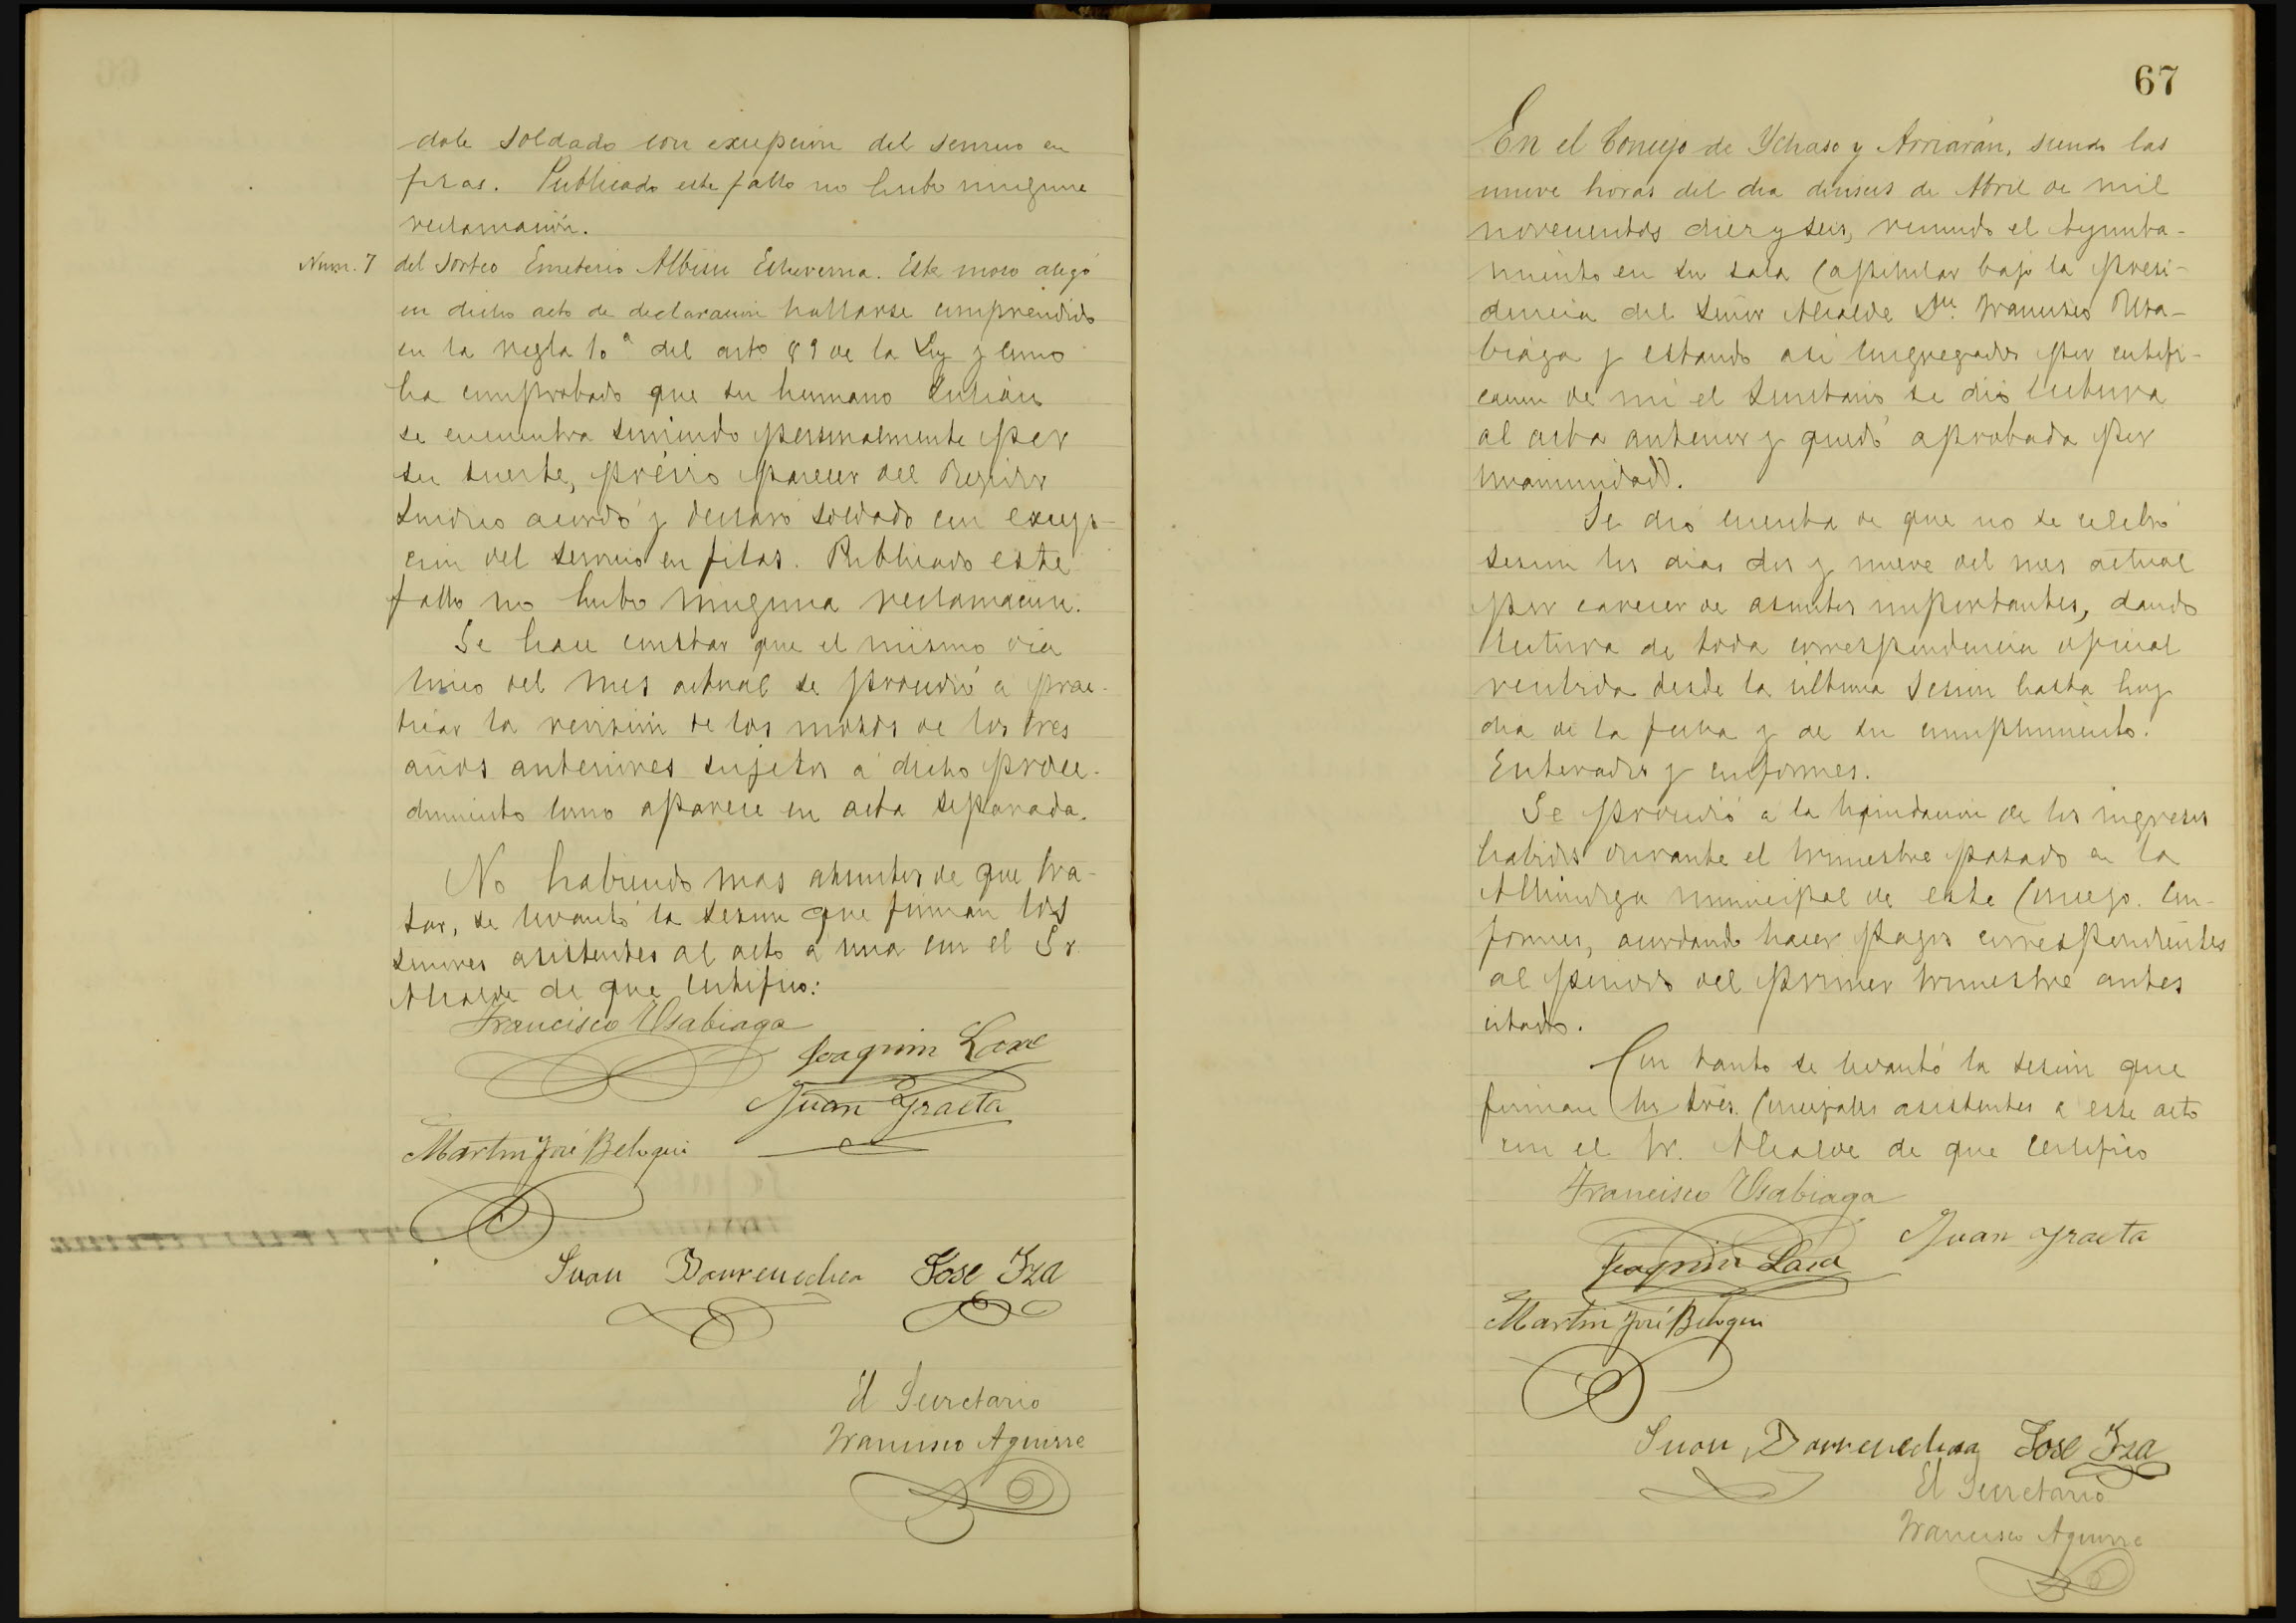 dole soldado con excepción del servicio en
filas. Publicado este fallo no hubo ninguna
reclamación.
Num. 7 del sorteo Emeterio Albisu Echeverria. Este mozo alegó
en dicho acto de declaración hallarse comprendido
en la regla 10ª del artº 89 de la Ley y como
ha comprobado que su hermano Julián
se encuentra sirviendo personalmente por
su suerte, prévio parecer del Regidor
Sindico acordó y declaró soldado con excep-
ción del servicio en filas. Publicado este
fallo no hubo ninguna reclamación.
Se hace constar que el mismo día
cinco del mes actual se procedió a prac-
ticar la revisión de los mozos de los tres
años anteriores sujetos á dicho proce-
dimiento como aparece en acta separada.
No habiendo mas asuntos de que tra-
tar, se levantó la sesion que firman los
señores asistentes al acto a una con el Sr.
Alcalde de que certifico:
Francisco Usabiaga
Joaquin Lasa
Juan Yraeta
Martin José Beloqui
Juan Barrenechea Jose Iza
El Secretario
Francisco Aguirre
67
En el Concejo de Ychaso y Arriarán, siendo las
nueve horas del dia dieciseis de Abril de mil
novecientos diez y seis, reunido el Ayunta-
miento en su sala Capitular bajo la presi-
dencia del Señor Alcalde Dn. Francisco Usa-
biaga y estando asi congregados por certifi-
cación de mi el Secretario se dió lectura
al acta anterior y quedó aprobada por
unanimidad.
Se dió cuenta de que no se celebró
sesion los dias dos y nueve del mes actual
por carecer de asuntos importantes, dando
lectura de toda correspondencia oficial
recibida desde la última sesion hasta hoy
dia de la fecha y de su cumplimiento.
Enterados y conformes.
Se procedió á la liquidación de los ingresos
habidos durante el trimestre pasado en la
Alhóndiga municipal de este Concejo. Con-
formes, acordando hacer pagos correspondientes
al periodo del primer trimestre antes
citado.
Con tanto se levantó la sesión que
firman los Sres. Concejales asistentes a este acto
con el Sr. Alcalde de que certifico
Francisco Usabiaga
Juan Yraeta
Joaquin Lasa
Martin José Beloqui
Juan Barrenechea Jose Iza
El Secretario
Francisco Aguirre